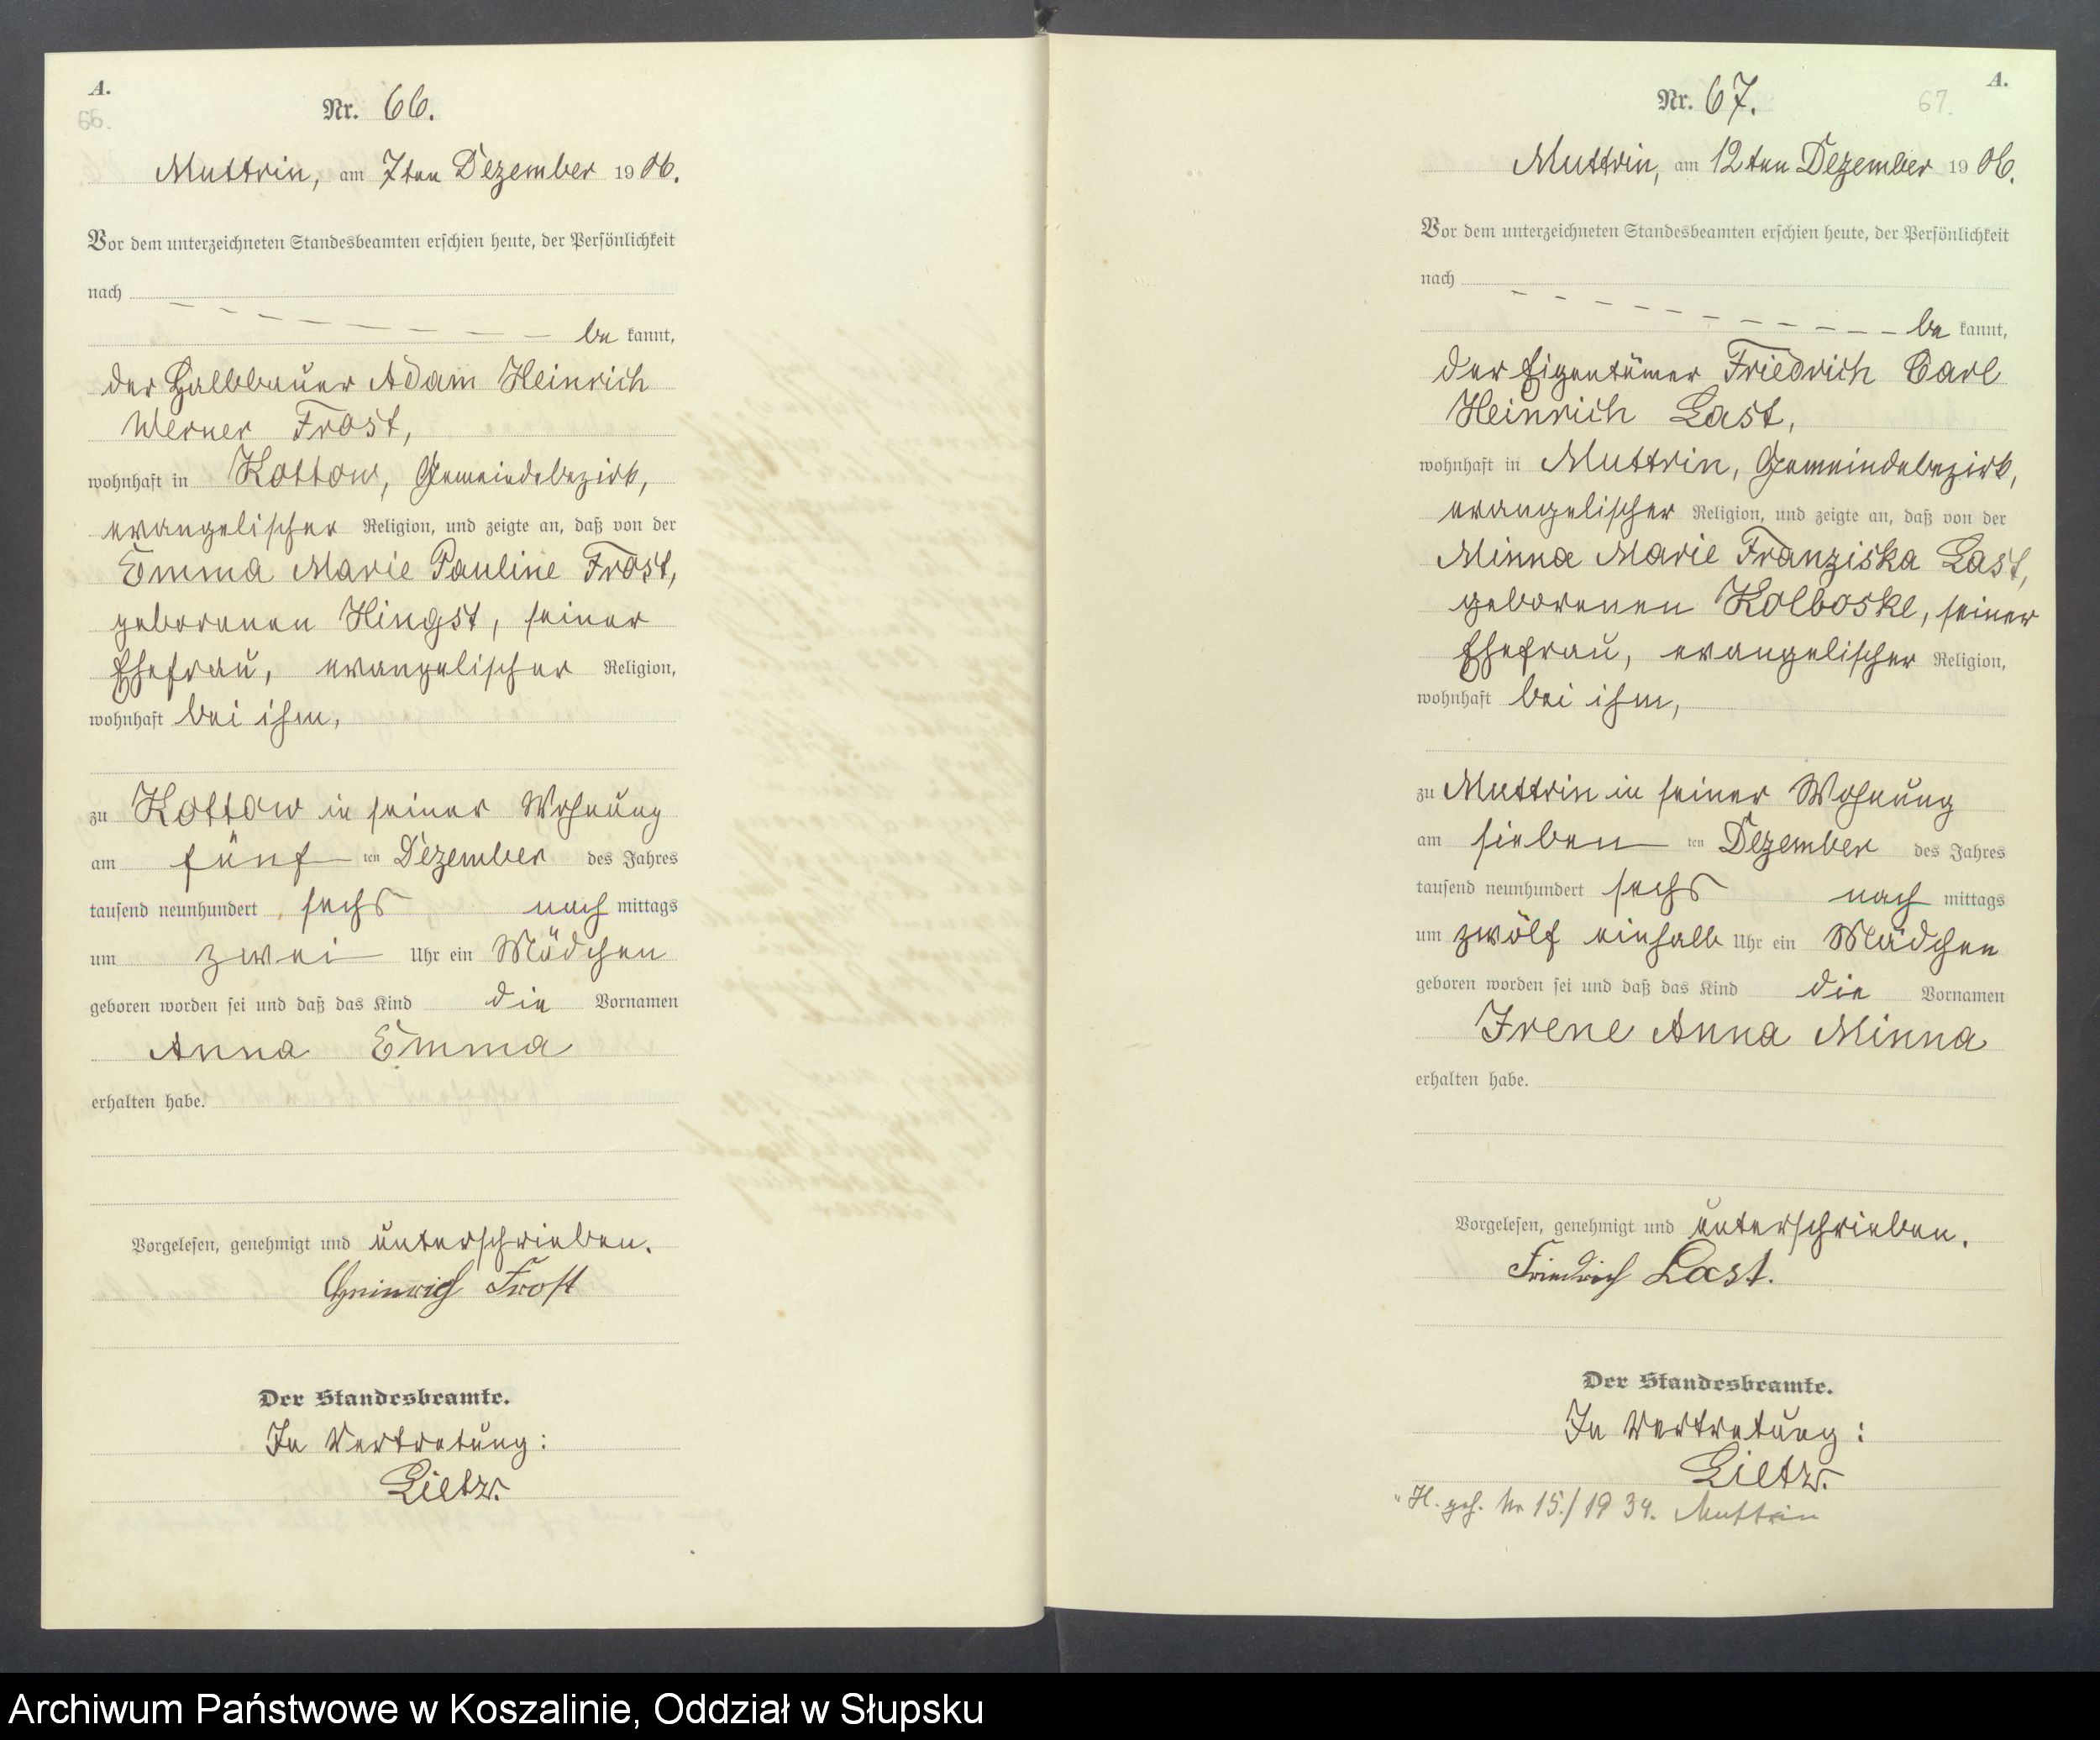 A.
66.
Nr. 66.
Muttrin, am 7ten Dezember 1906.
Vor dem unterzeichneten Standesbeamten erschien heute, der Persönlichkeit
nach
be kannt,
der Halbbauer Adam Heinrich
Werner Frost,
wohnhaft in Kottow, Gemeindebezirk,
evangelischer Religion, und zeigte an, daß von der
Emma Marie Pauline Frost,
geborenen Hingst, seiner
Ehefrau, evangelischer Religion,
wohnhaft bei ihm,
zu Kottow in seiner Wohnung
am fünf ten Dezember des Jahres
tausend neunhundert sechs nach mittags
um zwei Uhr ein Mädchen
geboren worden sei und daß das Kind die Vornamen
Anna Emma
erhalten habe.
Vorgelesen, genehmigt und unterschrieben.
Heinrich Frost
Der Standesbeamte.
In Vertretung:
Lietz.
A.
67.
Nr. 67.
Muttrin, am 12ten Dezember 1906.
Vor dem unterzeichneten Standesbeamten erschien heute, der Persönlichkeit
nach
be kannt,
der Eigentümer Friedrich Carl
Heinrich Last,
wohnhaft in Muttrin, Gemeindebezirk,
evangelischer Religion, und zeigte an, daß von der
Minna Marie Franziska Last,
geborenen Kolboske, seiner
Ehefrau, evangelischer Religion,
wohnhaft bei ihm,
zu Muttrin in seiner Wohnung
am sieben ten Dezember des Jahres
tausend neunhundert sechs nach mittags
um zwölf einhalb Uhr ein Mädchen
geboren worden sei und daß das Kind die Vornamen
Irene Anna Minna
erhalten habe.
Vorgelesen, genehmigt und unterschrieben.
Friedrich Last.
Der Standesbeamte.
In Vertretung:
Lietz.
H. gsh. Nr 15./1934. Muttrin
Archiwum Państwowe w Koszalinie, Oddział w Słupsku